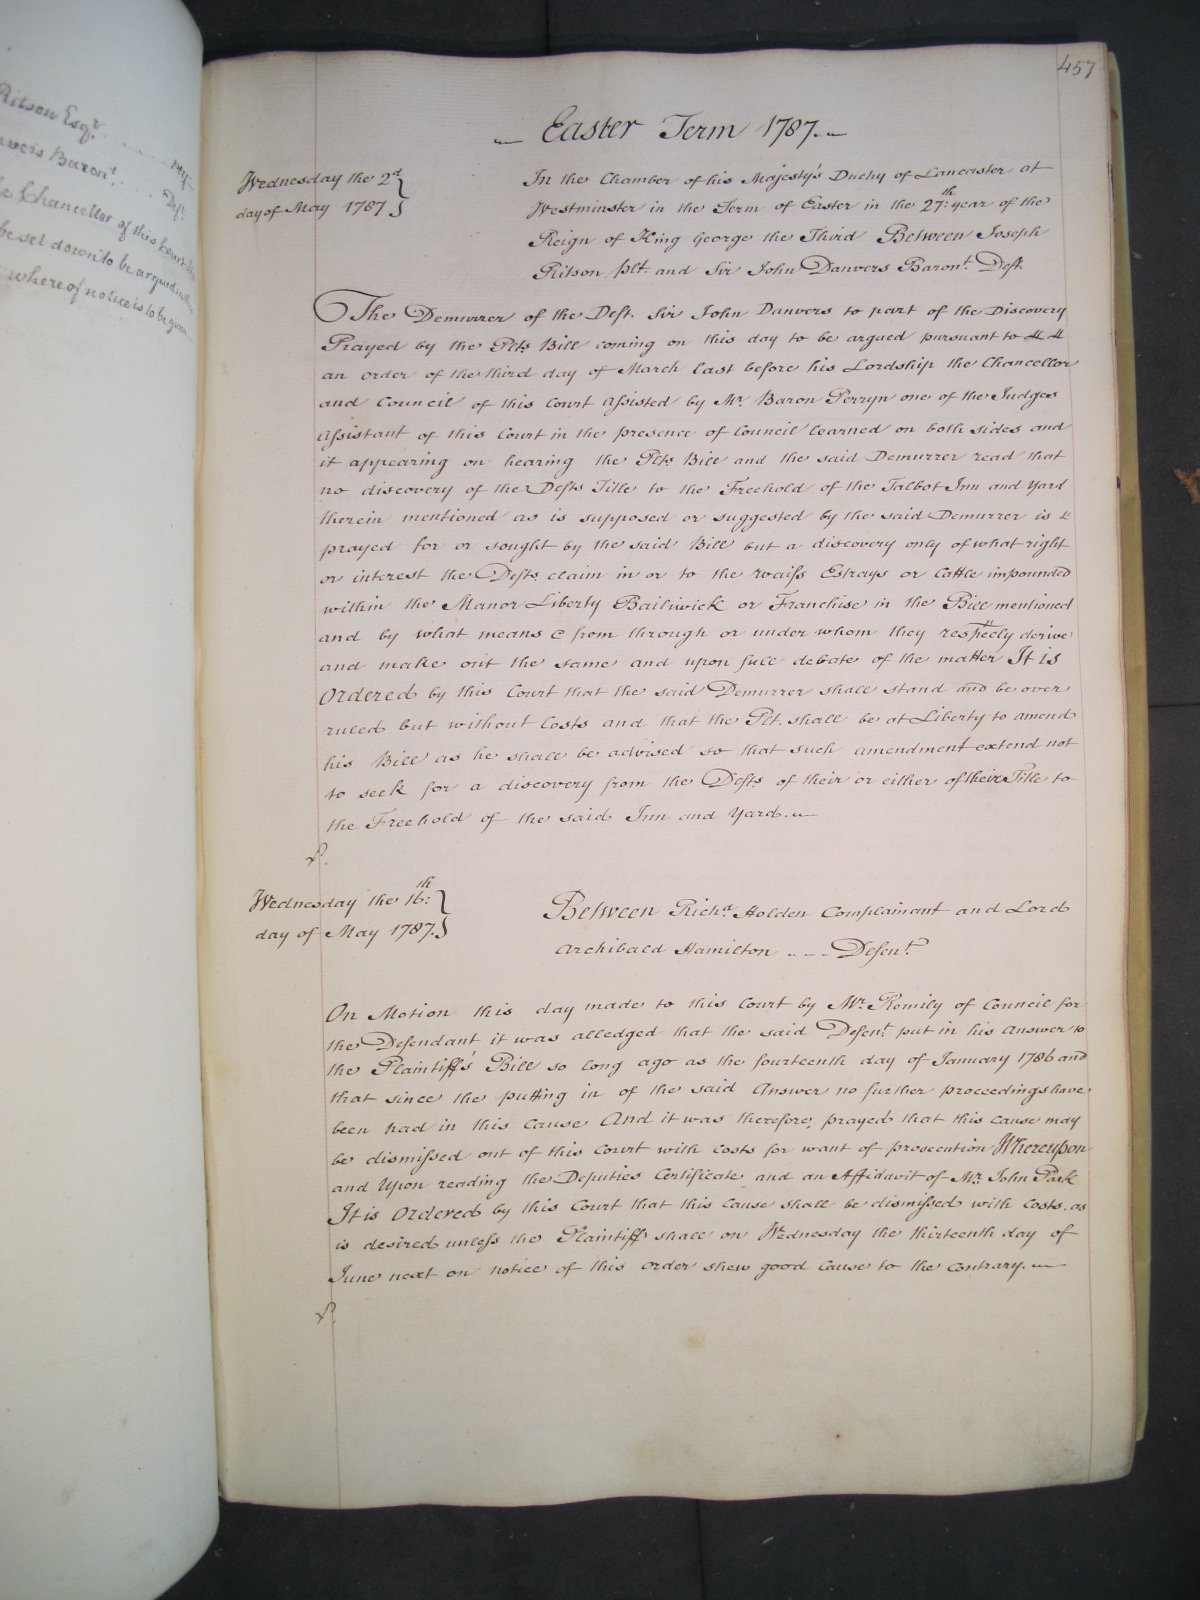 Ritson Esqr.
Baront.
Plt
Deft.
Chancellor of this Court
be set down to be argued
whereof notice is to be given
457
Easter Term 1787.
Wednesday the 2d
day of May 1787
In the Chamber of his Majesty's Duchy of Lancaster at
Westminster in the Term of Easter in the 27th: year of the
Reign of King George the Third Between Joseph
Ritson Plt. and Sir John Danvers Baront. Deft.
The Demurrer of the Deft. Sir John Danvers to part of the Discovery
Prayed by the Plts Bill coming on this day to be argued pursuant to
an order of the third day of March last before his Lordship the Chancellor
and Council of this Court assisted by Mr. Baron Perryn one of the Judges
Assistant of this Court in the presence of Council learned on both sides and
it appearing on hearing the Plts Bill and the said Demurrer read that
no discovery of the Defts Title to the Freehold of the Talbot Inn and Yard
therein mentioned as is supposed or suggested by the said Demurrer is
prayed for or sought by the said Bill but a discovery only of what right
or interest the Defts. claim in or to the waifs Estrays or Cattle impounded
within the Manor Liberty Bailiwick or Franchise in the Bill mentioned
and by what means & from through or under whom they respectively derive
and make out the same and upon full debate of the matter It is
Ordered by this Court that the said Demurrer shall stand and be over
ruled but without Costs and that the Plt. shall be at Liberty to amend
his Bill as he shall be advised so that such amendment extend not
to seek for a discovery from the Defts of their or either of their Title to
the Freehold of the said Inn and Yard.
Wednesday the 16th:
day of May 1787.
Between Richd. Holden Complainant and Lord
Archibald Hamilton - - - Defent.
On Motion this day made to this Court by Mr. Romily of Council for
the Defendant it was alledged that the said Defent. put in his Answer to
the Plaintiff's Bill so long ago as the fourteenth day of January 1786 and
that since the putting in of the said Answer no further proceedings have
been had in this Cause And it was therefore, prayed that this Cause may
be dismissed out of this Court with Costs for want of prosecution Whereupon
and Upon reading the Deputies Certificate and an Affidavit of Mr. John Park
It is Ordered by this Court that this Cause shall be dismissed with Costs. as
is desired unless the Plaintiff shall on Wednesday the thirteenth day of
June next on notice of this order shew good Cause to the Contrary.